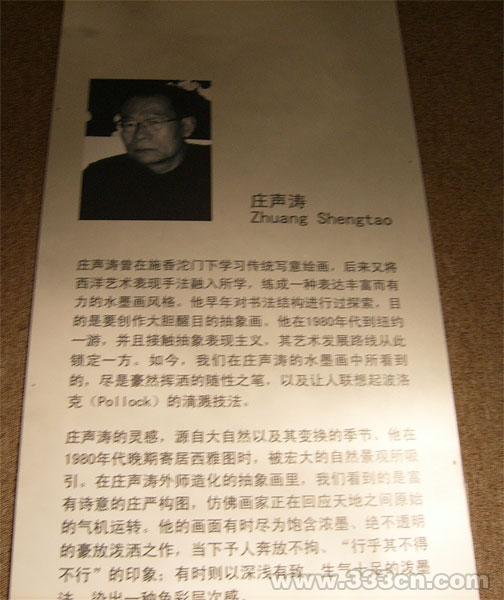 庄声涛
Zhuang Shengtao
庄声涛曾在施香沱门下学习传统写意绘画，后来又将
西洋艺术表现手法融入所学，练成一种表达丰富而有
力的水墨画风格。他早年对书法结构进行过探索，目
的是要创作大胆醒目的抽象画。他在1980年代到纽约
一游，并且接触抽象表现主义，其艺术发展路线从此
锁定一方。如今，我们在庄声涛的水墨画中所看到
的，尽是豪然挥洒的随性之笔，以及让人联想起波洛
克（Pollock）的滴溅技法。
庄声涛的灵感，源自大自然以及其变换的季节。他在
1980年代晚期寄居西雅图时，被宏大的自然景观所吸
引。在庄声涛外师造化的抽象画里，我们看到的是富
有诗意的庄严构图，仿佛画家正在回应天地之间原始
的气机运转。他的画面有时尽为饱含浓墨、绝不透明
的豪放泼洒之作，当下予人奔放不拘、“行乎其不得
不行”的印象；有时则以深浅有致、生气十足的泼墨
法，染出一种色彩层次感。
www.333cn.com